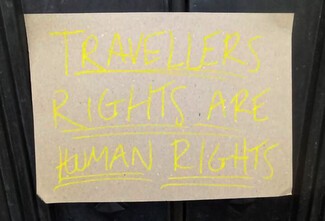 TRAVELLERS
RIGHTS ARE
HUMAN RIGHTS